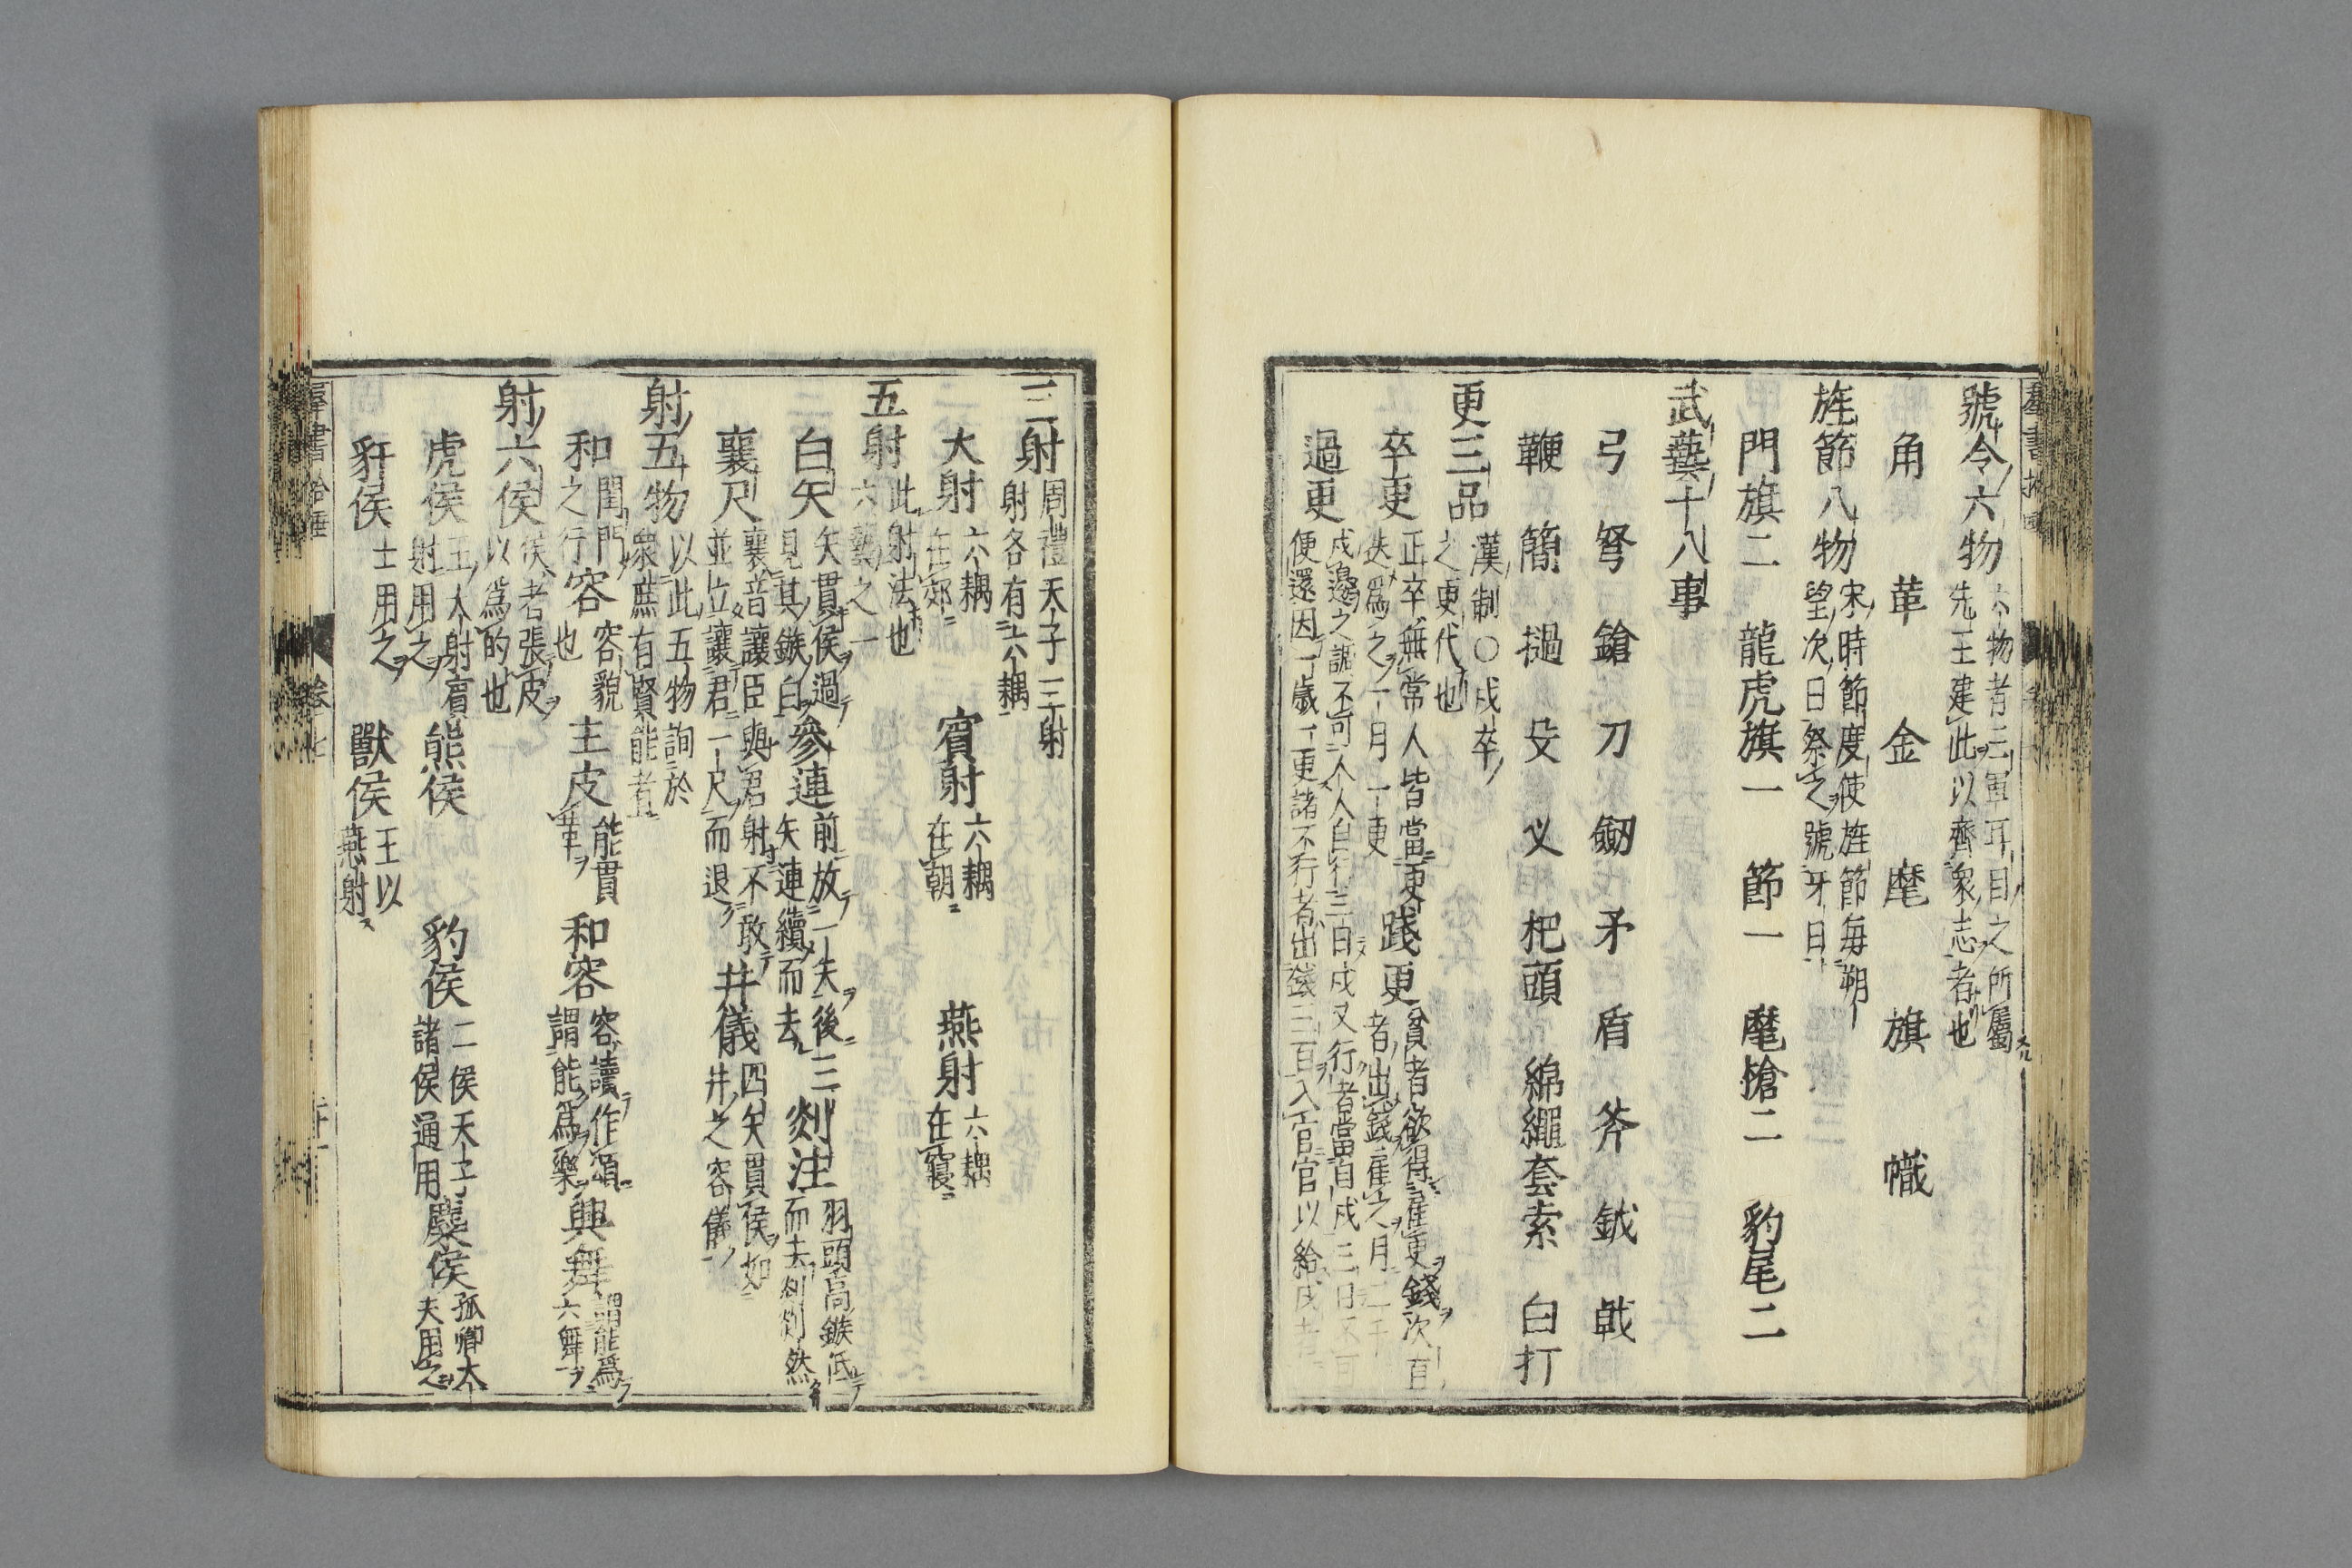 號令六物 六物者三軍耳目之所屬
先王建此以齊衆志者也
角 革 金 麾 旗 幟
旌節八物 宋時節度使旌節每朔
望次日祭之號牙日
門旗二 龍虎旗一 節一 麾槍二 豹尾二
武藝十八事
弓 弩 鎗 刀 劒 矛 盾 斧 鉞 戟
鞭 簡 撾 殳 叉 杷頭 綿繩套索 白打
更三品 漢制○戍卒
之更代也
卒更 正卒無常人皆當更
迭爲之一月一更
踐更 貧者欲得雇更錢次直
者出錢雇之月二千
過更 戍邊之調不可人人自行三日戍又行者當自戍三日不可
便還因一歲一更諸不行者出錢三百入官官以給戍者
三射 周禮天子三射
射各有六耦
大射 六耦
在郊
賓射 六耦
在朝
燕射 六耦
在寢
五射 此射法也
六藝之一
白矢 矢貫侯過
見其鏃白
參連 前放一矢後三
矢連續而去
剡注 羽頭高鏃低
而去剡剡然
襄尺 襄音讓臣與君射不敢
並立讓君一尺而退
井儀 四矢貫侯如
井之容儀
射五物 以此五物詢於
衆庶有賢能者
和 閨門
之行
容 容貌
也
主皮 能貫
革
和容 容讀作頌
謂能爲樂
興舞 謂能爲
六舞
射六侯 侯者張皮
以爲的也
虎侯 王大射賓
射用之
熊侯
豹侯 二侯天子
諸侯通用
麋侯 孤卿大
夫用之
豻侯 士用之
獸侯 王以
燕射